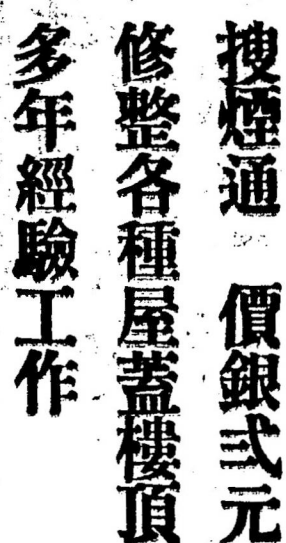 搜煙通 價銀弍元
修整各種屋蓋樓頂
多年經驗工作